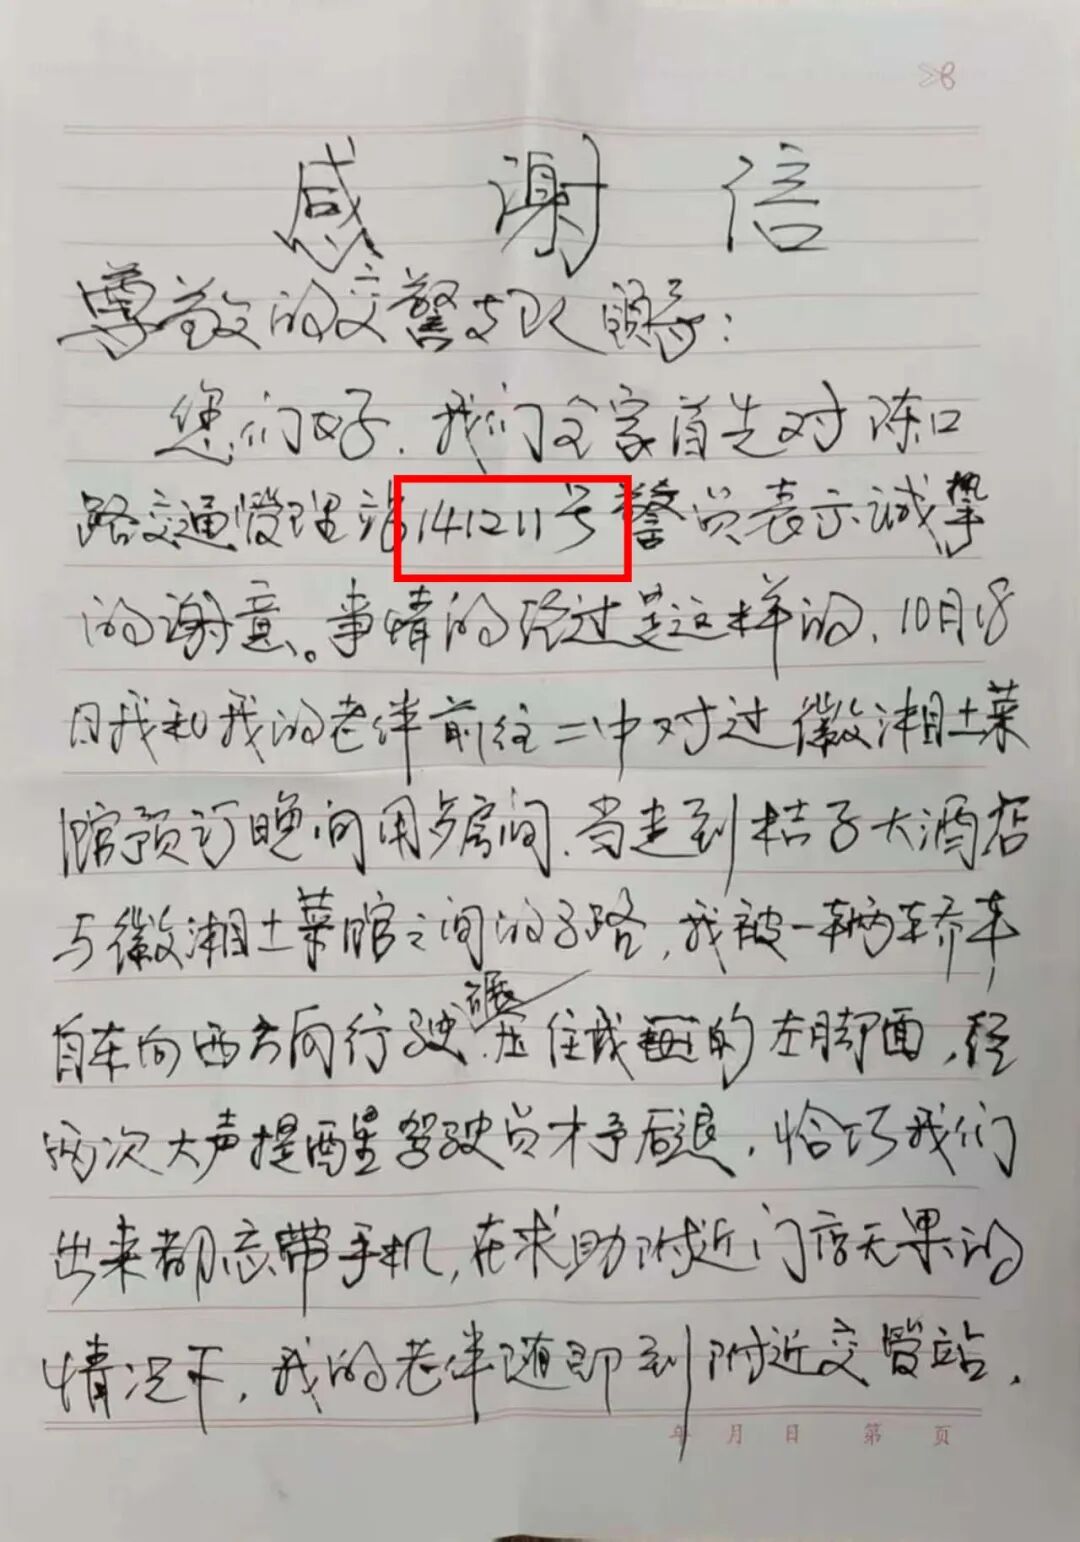 感谢信
尊敬的交警支队领导：
您们好．我们全家首先对陈口
路交通管理站141211号警员表示诚挚
的谢意。事情的经过是这样的，10月18
日我和我的老伴前往二中对过徽湘土菜
馆预订晚间用歺房间．当走到桔子大酒店
与徽湘土菜馆之间的子路，我被一辆轿车
自东向西方向行驶碾压住我的左脚面，经
两次大声提醒驾驶员才予后退．恰巧我们
出来都忘带手机，在求助附近门店无果的
情况下，我的老伴随即到附近交管站，
年 月 日 第 页